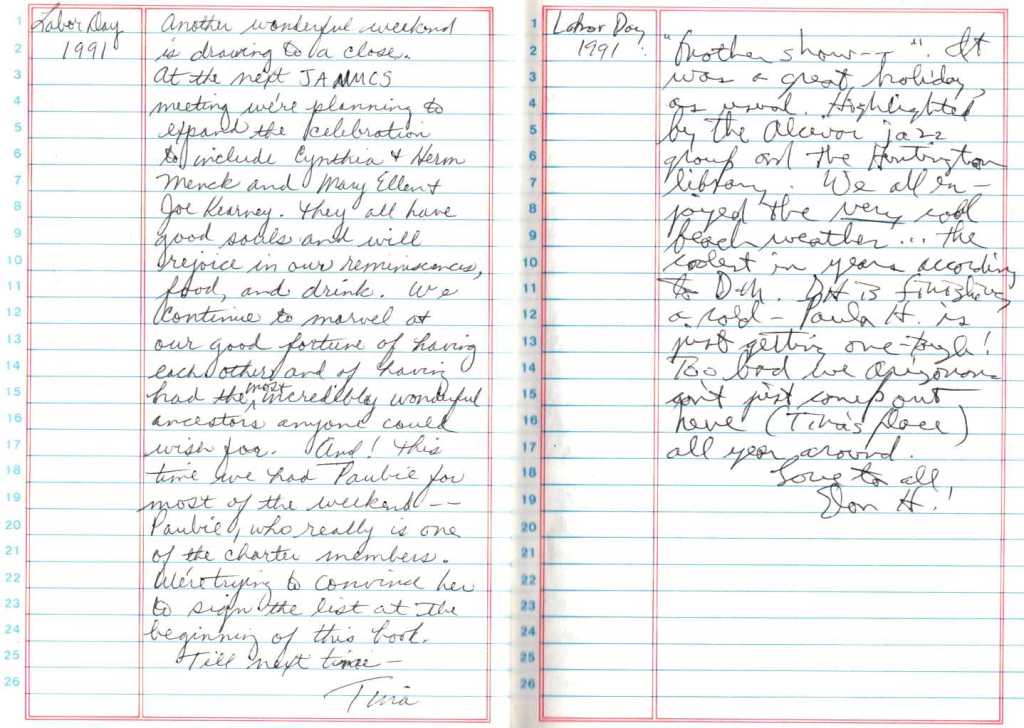 Labor Day
1991
Another wonderful weekend
is drawing to a close.
At the next JAMMCS
meeting we're planning to
expand the celebration
to include Cynthia & Herm
Menck and Mary Ellen &
Joe Kearney. They all have
good souls and will
rejoice in our reminiscences,
food, and drink. We
continue to marvel at
our good fortune of having
each other and of having
had the most incredibly wonderful
ancestors anyone could
wish for. And! This
time we had Paubie for
most of the weekend --
Paubie, who really is one
of the charter members.
We're trying to convince her
to sign the list at the
beginning of this book.
Till next time -
Tina
Labor Day
1991
"Another show--". It
was a great holiday,
as usual. Highlighted
by the jazz
group and the Huntington
library. We all en-
joyed the very cold
beach weather... the
coolest in years according
to D.M. DH is finishing
a cold - Paula H. is
just getting one - tough!
Too bad we
can't just come out
here (Tina's place)
all year around.
Love to all,
Don H.!
1
2
3
4
5
6
7
8
9
10
11
12
13
14
15
16
17
18
19
20
21
22
23
24
25
26
1
2
3
4
5
6
7
8
9
10
11
12
13
14
15
16
17
18
19
20
21
22
23
24
25
26